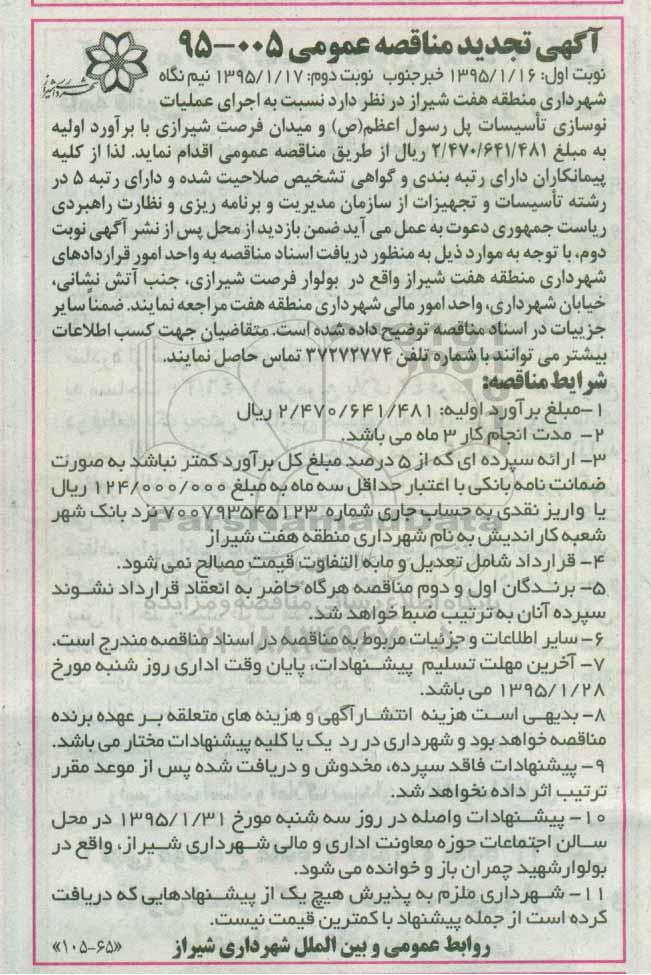 آگهی تجدید مناقصه عمومی ۰۰۵-۹۵
نوبت اول: ۱۳۹۵/۱/۱۶ خبرجنوب نوبت دوم: ۱۳۹۵/۱/۱۷ نیم نگاه
شهرداری منطقه هفت شیراز در نظر دارد نسبت به اجرای عملیات
نوسازی تأسیسات پل رسول اعظم(ص) و میدان فرصت شیرازی با برآورد اولیه
به مبلغ ۲/۴۷۰/۶۴۱/۴۸۱ ریال از طریق مناقصه عمومی اقدام نماید. لذا از کلیه
پیمانکاران دارای رتبه بندی و گواهی تشخیص صلاحیت شده و دارای رتبه ۵ در
رشته تأسیسات و تجهیزات از سازمان مدیریت و برنامه ریزی و نظارت راهبردی
ریاست جمهوری دعوت به عمل می آید ضمن بازدید از محل پس از نشر آگهی نوبت
دوم، با توجه به موارد ذیل به منظور دریافت اسناد مناقصه به واحد امور قراردادهای
شهرداری منطقه هفت شیراز واقع در بولوار فرصت شیرازی، جنب آتش نشانی،
خیابان شهرداری، واحد امور مالی شهرداری منطقه هفت مراجعه نمایند. ضمناً سایر
جزییات در اسناد مناقصه توضیح داده شده است. متقاضیان جهت کسب اطلاعات
بیشتر می توانند با شماره تلفن ۳۷۲۷۲۷۷۴ تماس حاصل نمایند.
شرایط مناقصه:
۱-مبلغ برآورد اولیه: ۲/۴۷۰/۶۴۱/۴۸۱ ریال
۲- مدت انجام کار ۳ ماه می باشد.
۳- ارائه سپرده ای که از ۵ درصد مبلغ کل برآورد کمتر نباشد به صورت
ضمانت نامه بانکی با اعتبار حداقل سه ماه به مبلغ ۱۲۴/۰۰۰/۰۰۰ ریال
یا واریز نقدی به حساب جاری شماره ۷۰۰۷۹۳۵۴۵۱۲۳ نزد بانک شهر
شعبه کاراندیش به نام شهرداری منطقه هفت شیراز
۴- قرارداد شامل تعدیل و مابه التفاوت قیمت مصالح نمی شود.
۵- برندگان اول و دوم مناقصه هرگاه حاضر به انعقاد قرارداد نشوند
سپرده آنان به ترتیب ضبط خواهد شد.
۶- سایر اطلاعات و جزئیات مربوط به مناقصه در اسناد مناقصه مندرج است.
۷- آخرین مهلت تسلیم پیشنهادات، پایان وقت اداری روز شنبه مورخ
۱۳۹۵/۱/۲۸ می باشد.
۸- بدیهی است هزینه انتشارآگهی و هزینه های متعلقه بر عهده برنده
مناقصه خواهد بود و شهرداری در رد یک یا کلیه پیشنهادات مختار می باشد.
۹- پیشنهادات فاقد سپرده، مخدوش و دریافت شده پس از موعد مقرر
ترتیب اثر داده نخواهد شد.
۱۰- پیشنهادات واصله در روز سه شنبه مورخ ۱۳۹۵/۱/۳۱ در محل
سالن اجتماعات حوزه معاونت اداری و مالی شهرداری شیراز، واقع در
بولوارشهید چمران باز و خوانده می شود.
۱۱- شهرداری ملزم به پذیرش هیچ یک از پیشنهادهایی که دریافت
کرده است از جمله پیشنهاد با کمترین قیمت نیست.
روابط عمومی و بین الملل شهرداری شیراز «۶۵-۱۰۵»
ParsNamadData